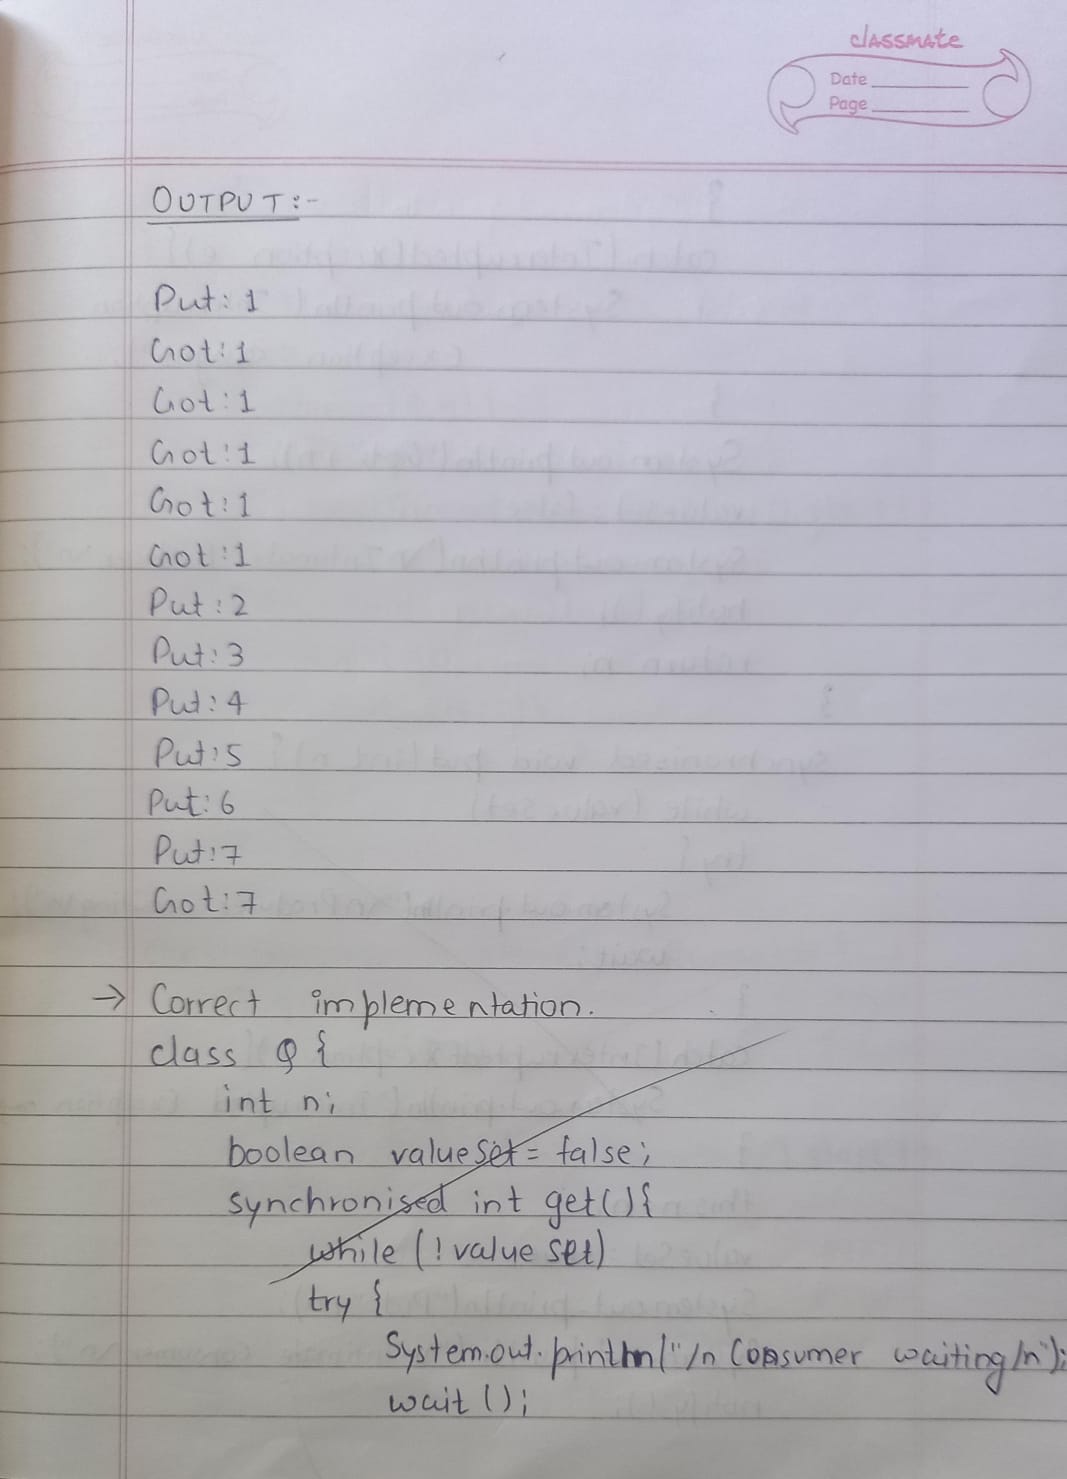 classmate
Date
Page
OUTPUT:-
Put: 1
Got: 1
Got: 1
Got: 1
Got: 1
Got: 1
Put: 2
Put: 3
Put: 4
Put: 5
Put: 6
Put: 7
Got: 7
→ Correct implementation.
class Q {
int n;
boolean valueset = false;
synchronised int get(){
while (! value set)
try {
System.out.println("/n Consumer waiting/n");
wait ();